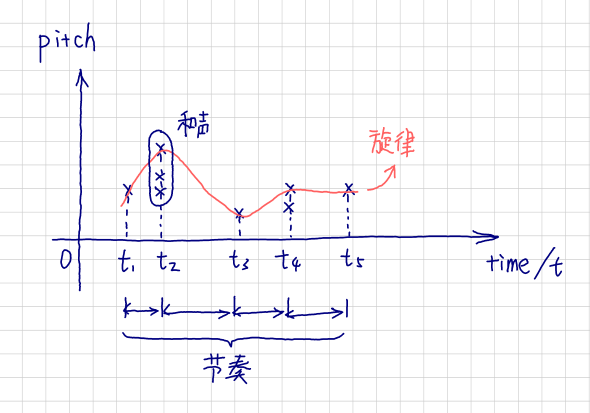 pitch
和声
旋律
0 t₁ t₂ t₃ t₄ t₅ time/t
节奏